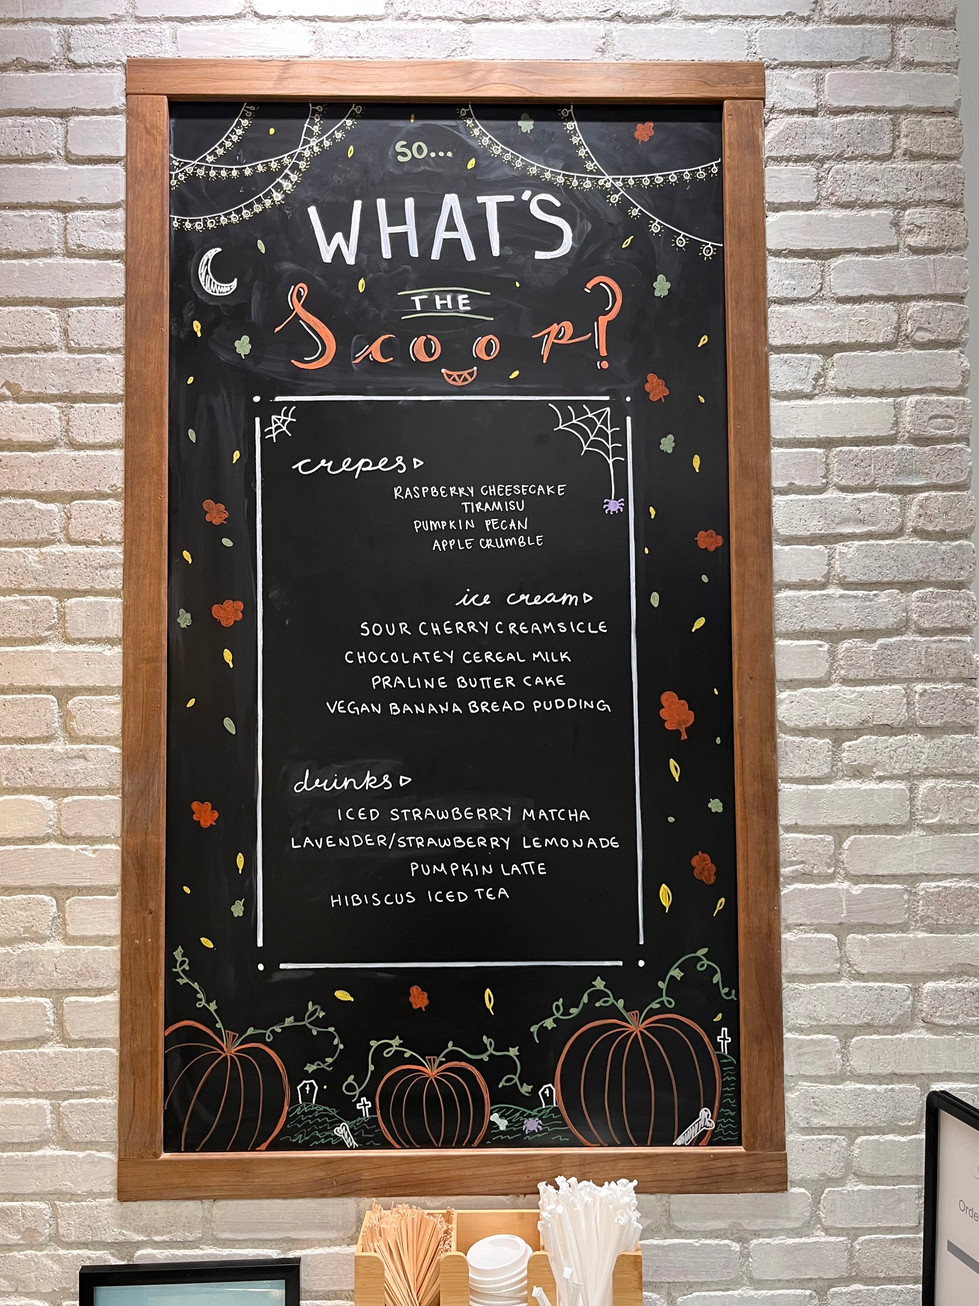 SO...
WHAT'S
THE
Scoop?
crepes
RASPBERRY CHEESECAKE
TIRAMISU
PUMPKIN PECAN
APPLE CRUMBLE
ice cream
SOUR CHERRY CREAMSICLE
CHOCOLATEY CEREAL MILK
PRALINE BUTTER CAKE
VEGAN BANANA BREAD PUDDING
drinks
ICED STRAWBERRY MATCHA
LAVENDER/STRAWBERRY LEMONADE
PUMPKIN LATTE
HIBISCUS ICED TEA